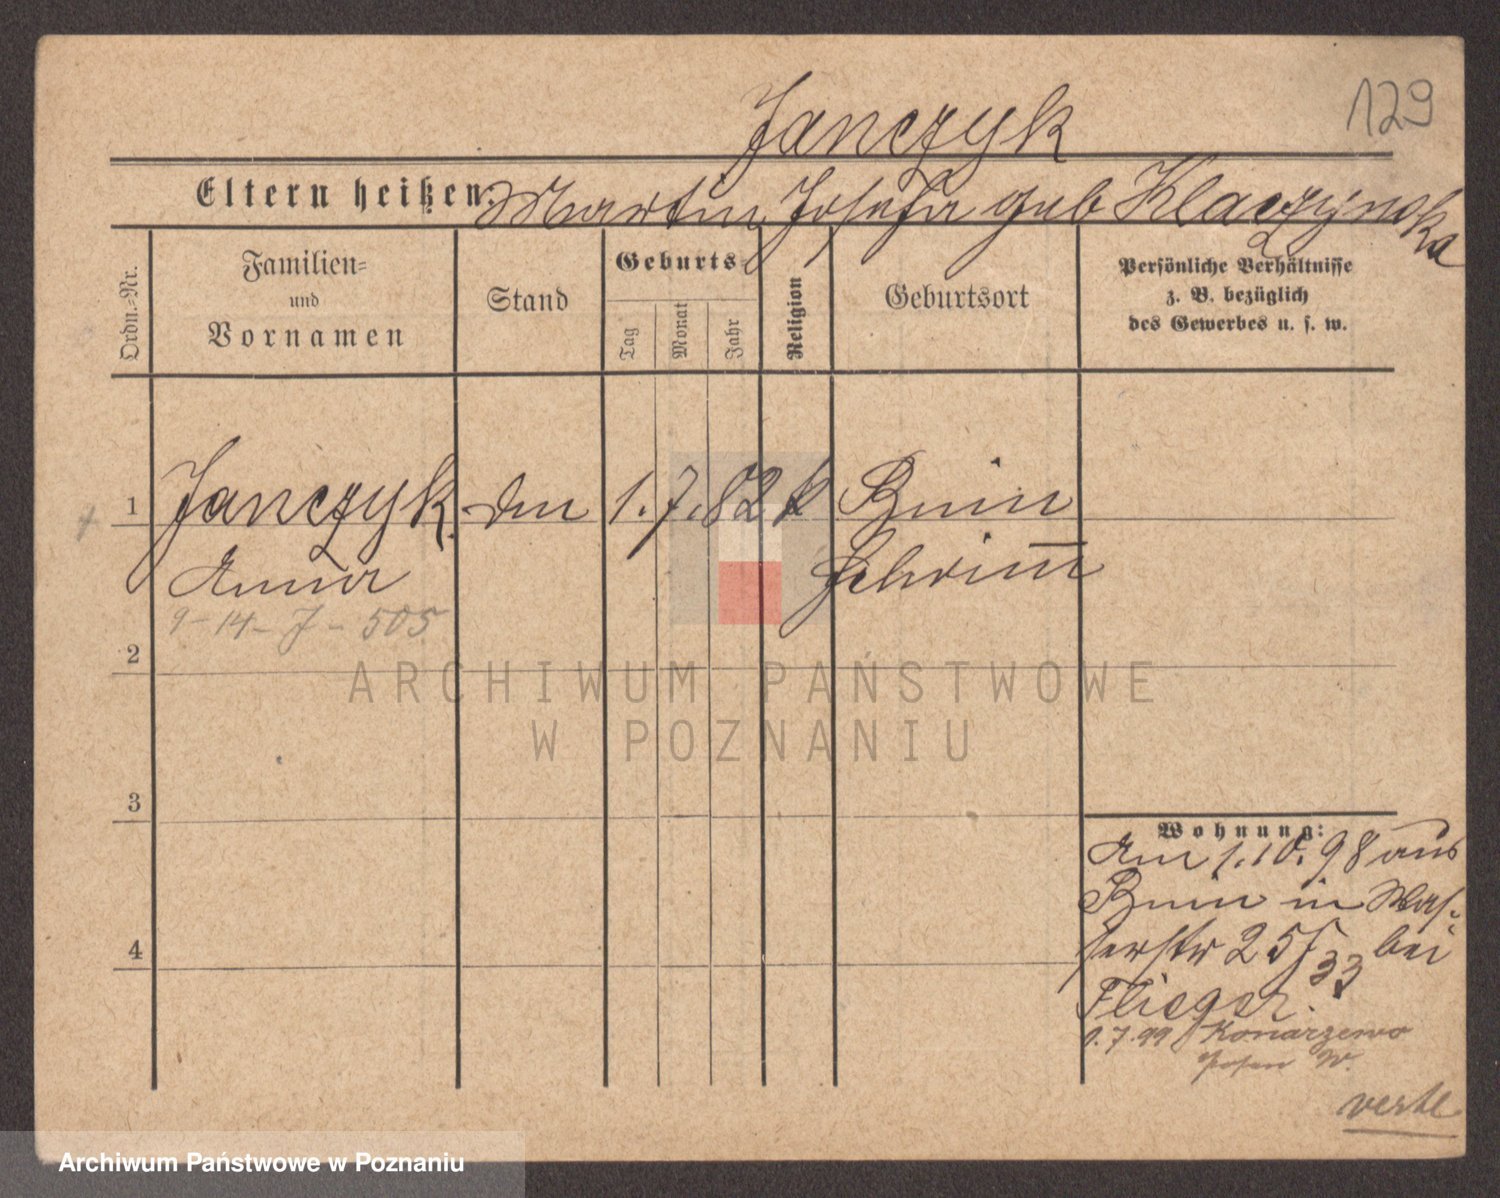 129
Janczyk
Eltern heißen: Martin Josefa geb Klaczynska
Ordn.-Nr.
Familien-
und
Vornamen
Stand
Geburts-
Tag
Monat
Jahr
Religion
Geburtsort
Persönliche Verhältnisse
z. B. bezüglich
des Gewerbes u. s. w.
1 Janczyk 1. 7. 82 k Bnin
Anna Schrimm
9-14-J-505
2
ARCHIWUM PAŃSTWOWE
W POZNANIU
3
Wohnung:
Am 1.10.98 aus
Bnin in Was-
serstr 25 33 bei
Flieger.
1.7.99 Konarzewo
Posen W.
4
verte
Archiwum Państwowe w Poznaniu